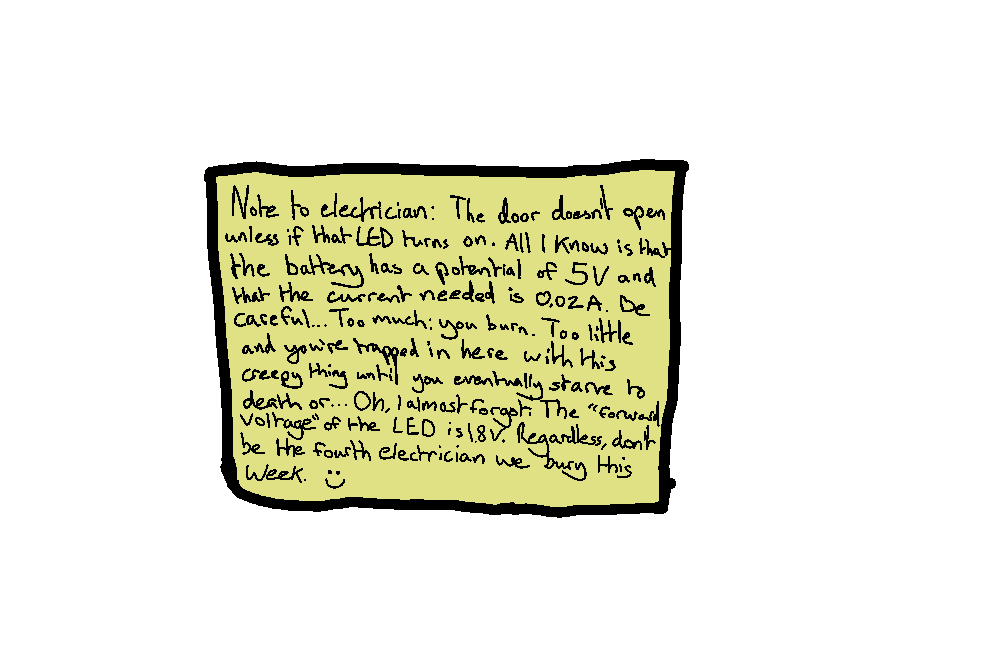 Note to electrician: The door doesn't open
unless if that LED turns on. All I know is that
the battery has a potential of 5V and
that the current needed is 0.02A. Be
careful... Too much; you burn. Too little
and you're trapped in here with this
creepy thing until you eventually starve to
death or... Oh, I almost forgot: The "forward
voltage" of the LED is 1.8V. Regardless, don't
be the fourth electrician we bury this
week. :)